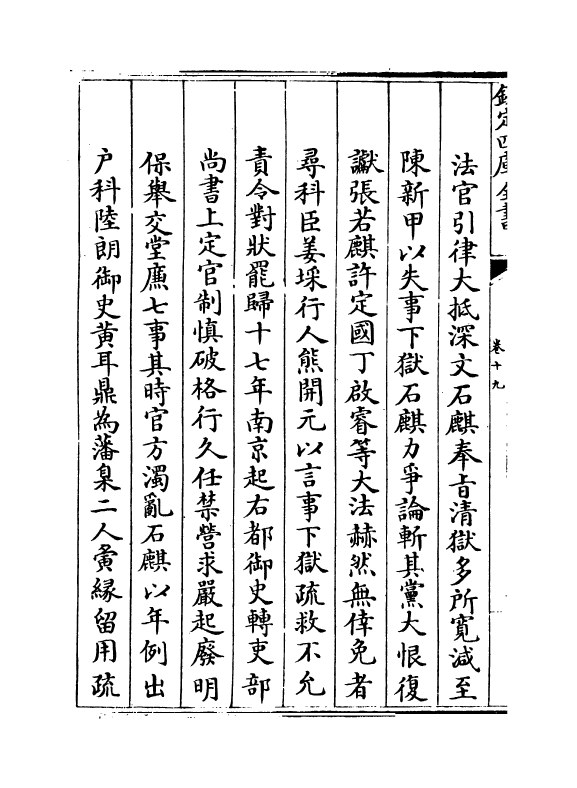 欽定四庫全書
卷十九
法官引律大抵深文石麒奉㫖清獄多所寛減至
陳新甲以失事下獄石麒力爭論斬其黨大恨復
讞張若麒許定國丁啟睿等大法赫然無倖免者
尋科臣姜埰行人熊開元以言事下獄疏救不允
責令對狀罷歸十七年南京起右都御史轉吏部
尚書上定官制慎破格行久任禁營求嚴起廢明
保舉交堂廉七事其時官方濁亂石麒以年例出
户科陸朗御史黄耳鼎為藩臬二人夤縁留用疏